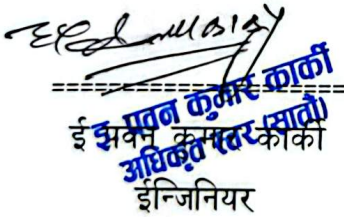 इ. पवन कुमार कार्की
अधिकृत स्तर (सातौं)
ई पवन कुमार कार्की
ईन्जिनियर